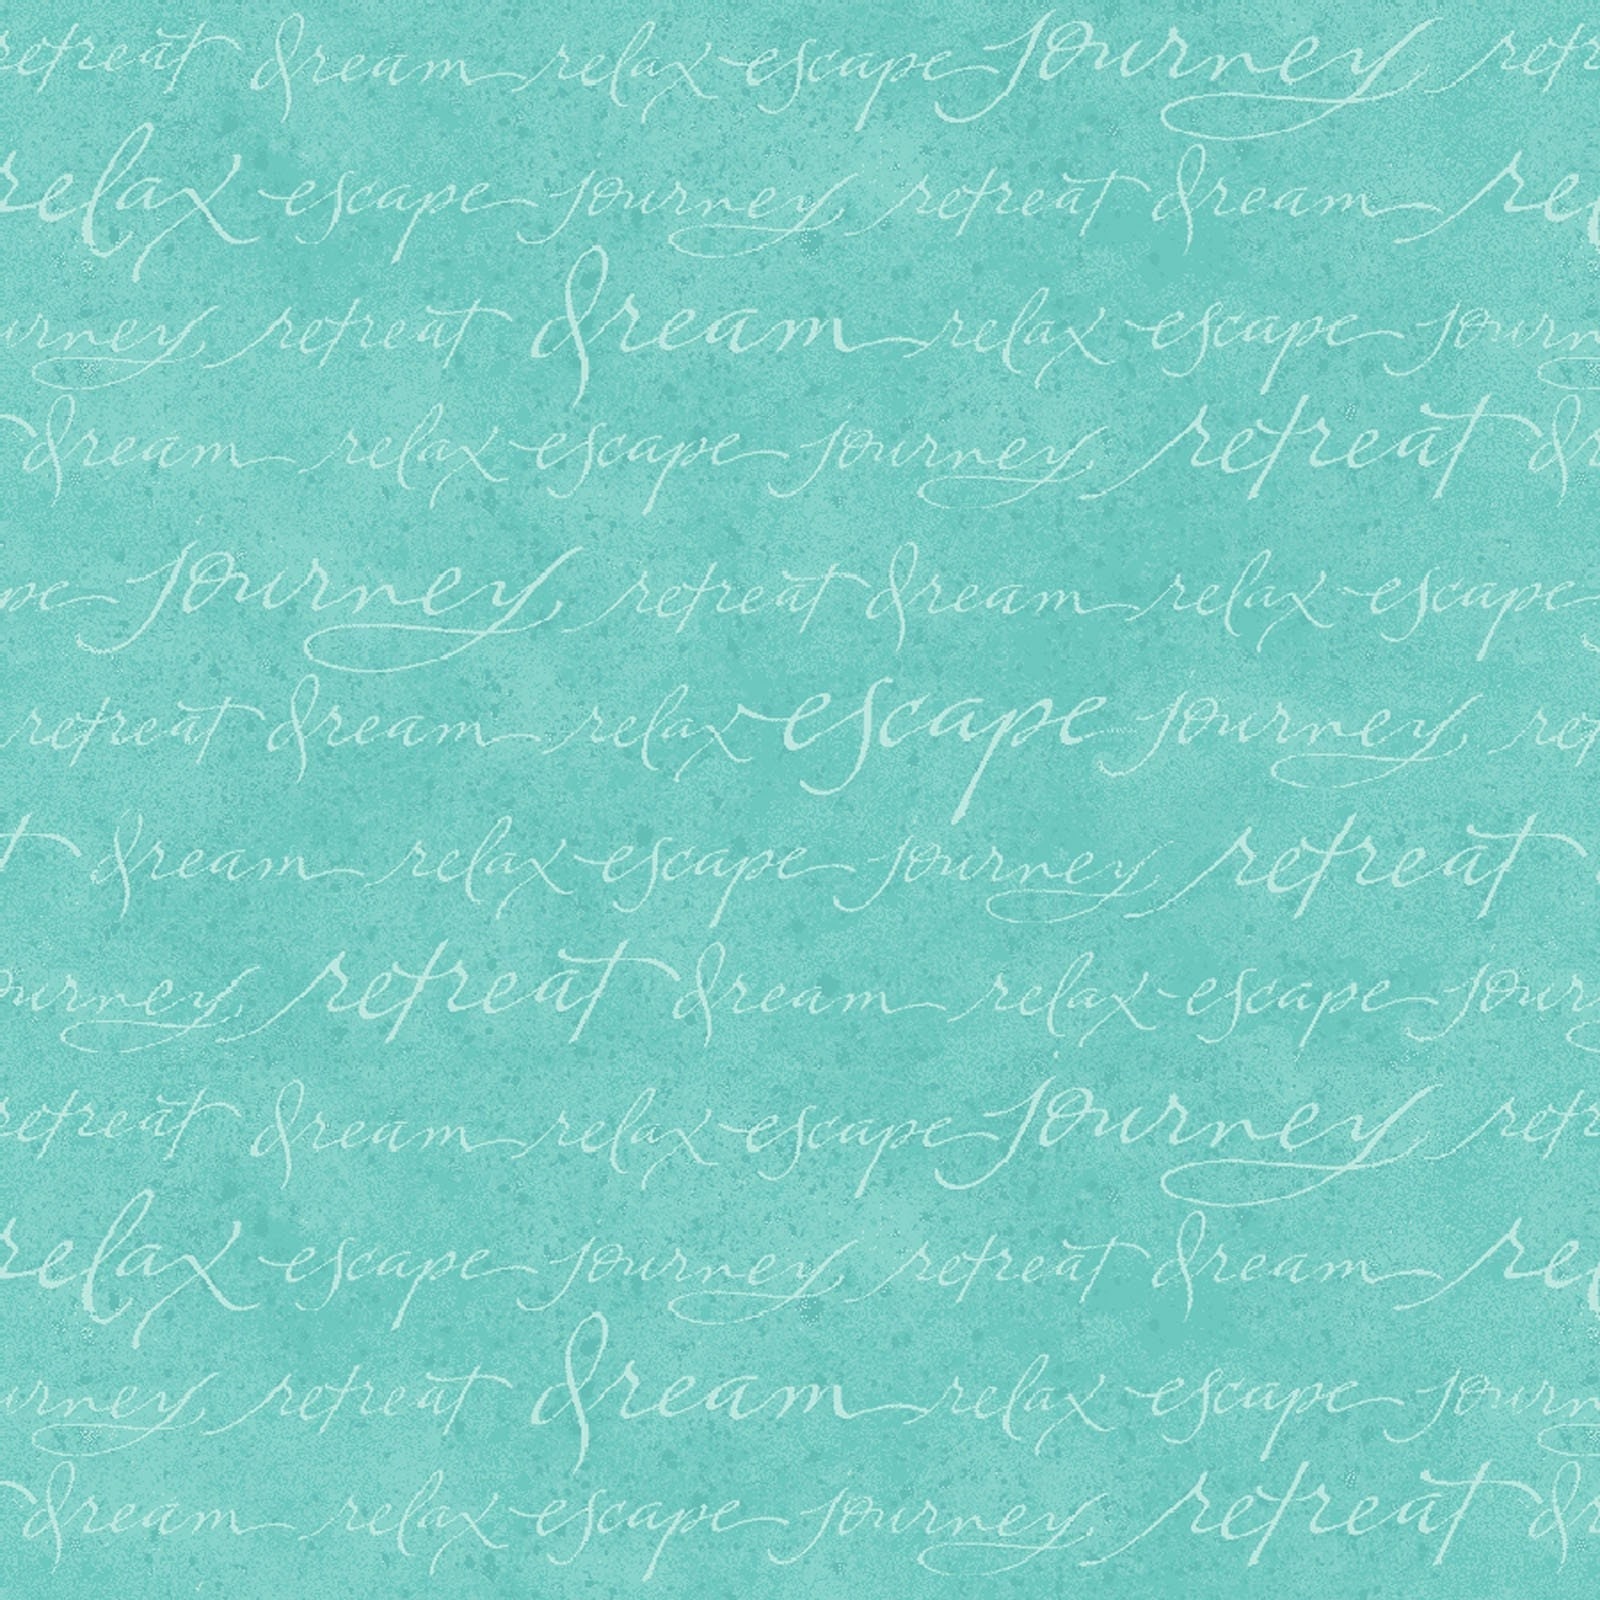 retreat dream relax escape journey retr
relax escape journey retreat dream re
urney retreat dream relax escape journ
dream relax escape journey retreat dr
pe journey retreat dream relax escape
retreat dream relax escape journey ret
t dream relax escape journey retreat
ourney retreat dream relax escape jour
retreat dream relax escape journey retr
relax escape journey retreat dream re
urney retreat dream relax escape journ
dream relax escape journey retreat dr